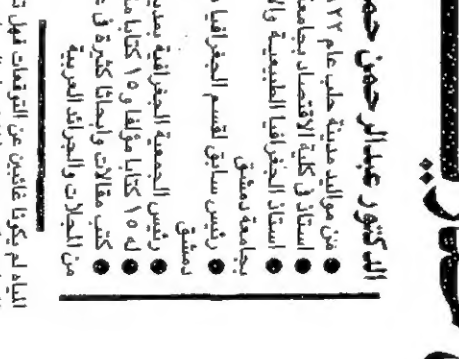 الدكتور عبدالرحمن حم
من مواليد مدينة حلب عام ٢٢
استاذ في كلية الاقتصاد بجامعة
استاذ الجغرافيا الطبيعية والا
بجامعة دمشق
رئيس سابق لقسم الجغرافيا
دمشق
رئيس الجمعية الجغرافية بمدين
له ١٥ كتابا مؤلفا و١٥ كتابا
كتب مقالات وابحاثا كثيرة في
من المجلات والجرائد العربية
المياه لم يكونا غائبين عن التوقعات فهل